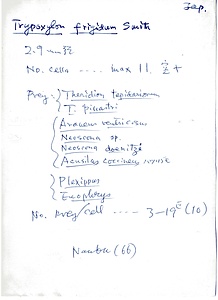 Jap.
Trypoxylon frigidum Smith
2.9
No. cells ..... max 11, Z +
Prey:
Theridion tepidariorum
T.
Araneus ventricosus
Neoscona sp.
Neoscona doenitzi
Acusilas coccineus
Plexippus
Euophrys
No. Prey/cell ..... 3-19 (10)
(66)